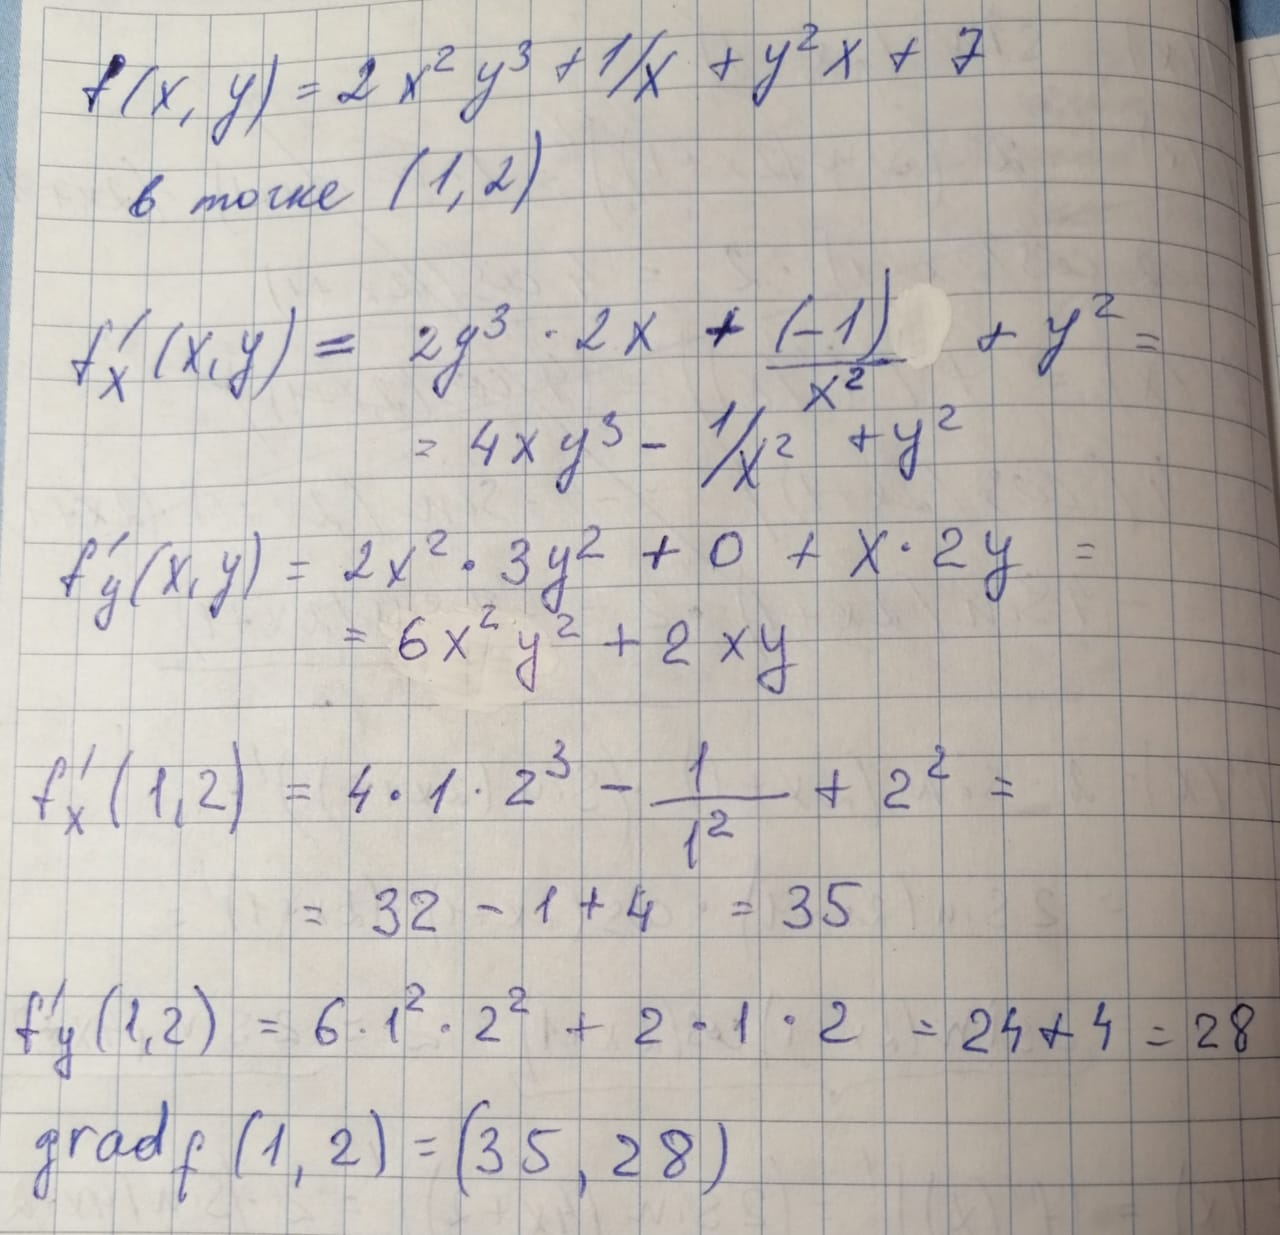 f(x, y) = 2x²y³ + 1/x + y²x + 7
в точке (1, 2)
f'x(x,y) = 2y³ · 2x + (-1)/x² + y² =
= 4xy³ - 1/x² + y²
f'y(x,y) = 2x² · 3y² + 0 + x · 2y =
= 6x²y² + 2xy
f'x(1,2) = 4 · 1 · 2³ - 1/1² + 2² =
= 32 - 1 + 4 = 35
f'y(1,2) = 6 · 1² · 2² + 2 · 1 · 2 = 24 + 4 = 28
grad f (1, 2) = (35, 28)